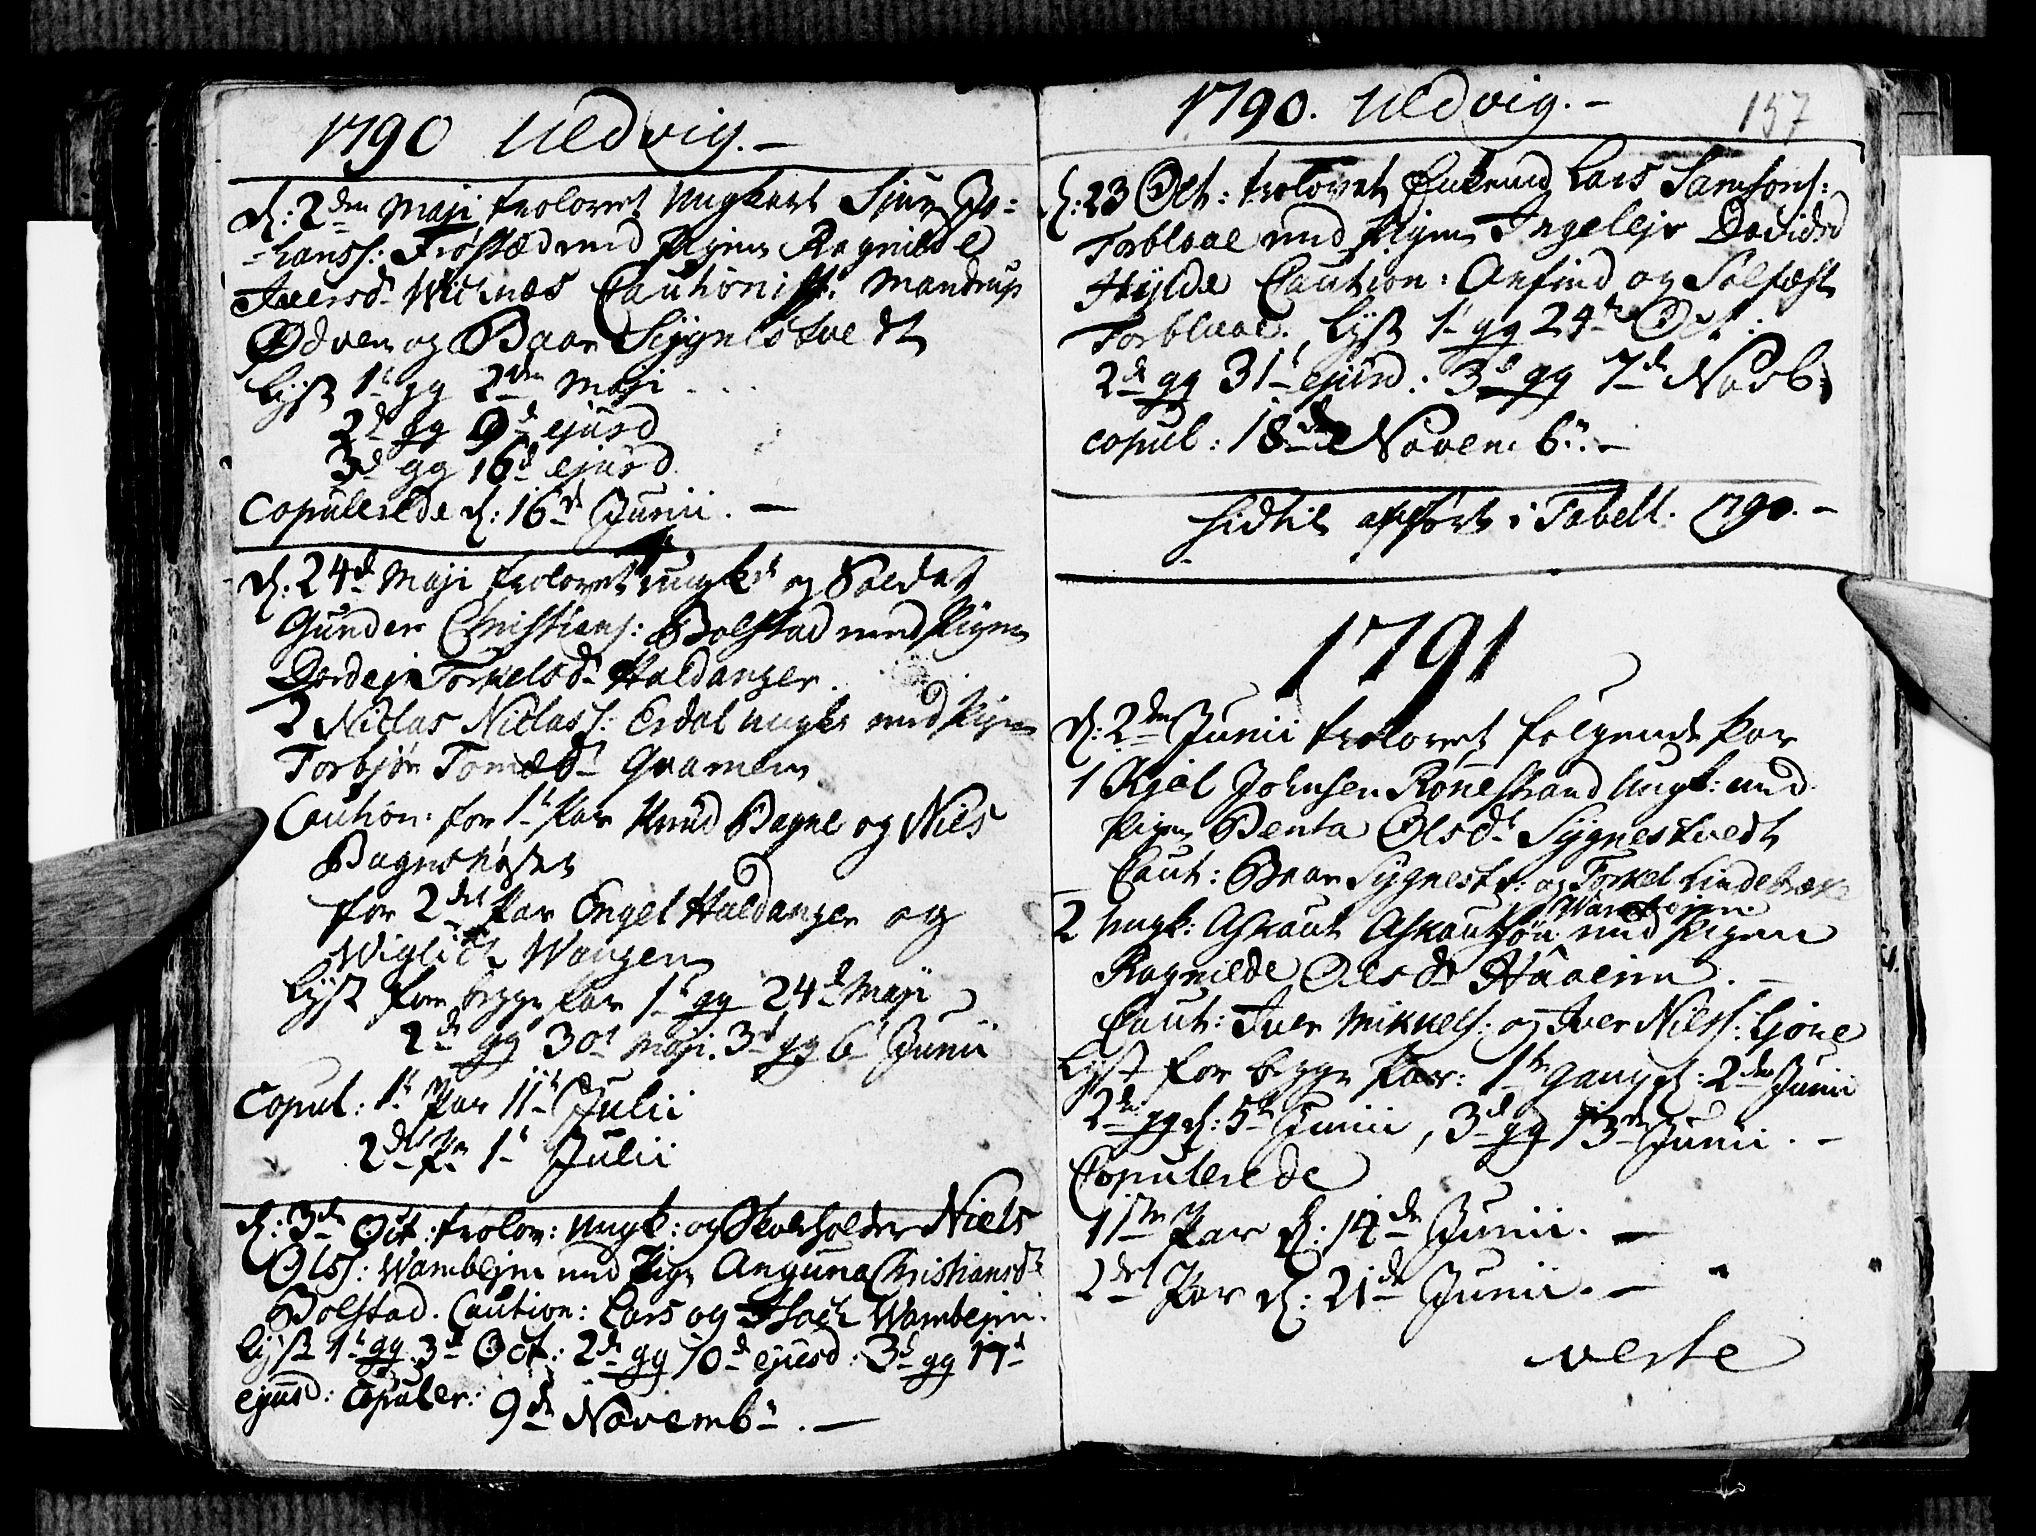 1790 Uldvig. —
d: 2den Maji trolovet Ungkarl Siur Jo=
=hanss: Frøstæd med Pigen Ragnilde
Iversd. Wichnæs Cautionist: Mandrup
Ødven og Baar Sygnestvedt
Lyst 1t gg 2den Maji
2d gg 9d ejusd
3d gg 16d ejusd
Copulerede d: 16d Junii. —
d: 24d Maji trolovet ungk og Soldat
Gunder Christians: Bolstad med Pigen
Dordej Torkelsdt Haldanger.
2 Niclas Niclass: Erdal ungk med Pigen
Torbjør Tomæsdt Qvamen
Caution: for 1t Par Knud Bagne og Niels
Bagne
for 2det Par Engel Haldanger og
Wiglich Wangen
Lyst for begge Par 1t gg 24d Maji
2d gg 30t Maji. 3d gg 6t Junii
Copul: 1t Par 11t Julii
2det Pr 1t Julii
d: 3d Oct: trolov: ungk: og Skoeholder Niels
Olss: Wambejm med Pige Anguna Christiansdt
Bolstad. Caution: Lars og Isach Wambejm.
Lyst 1t gg 3d Oct: 2d gg 10d ejusd: 3d gg 17d
ejusd: Copuler: 9d Novembr. —
1790. Uldvig. —
157
d: 23 Oct: trolovet Enkemd Lars Samsons:
Torblaae med Pigen Ingelejv Davidsd
Hylde Caution: Anfind og Solfæst
Torblaae. Lyst 1t gg 24de Oct:
2d gg 31t ejusd: 3d gg 7d Novb.
copul: 18de Novembr. —
hidtil anført i Tabell. 1790. —
1791
d: 2den Junii trolovet følgende Par
1 Kjel Johnsen Rønestrand Ungk: med
Pigen Benta Olsdt Sygnestvedt
Caut: Baar Sygnestv: og Torkel Lindebræke
Wambejm
2 ungk: Askaut Askautsøn med Pigen
Ragnilde Olsdr Haaeim. —
Caut: Iver Mikkels: og Iver Nilss: Lione
Lyst for begge Par: 1ste Gang d: 2den Junii
2den gg d: 5te Junii, 3d gg 13de Junii. —
Copulerede
1ste Par d: 14de Junii. —
2det Par d: 21de Junii. —
verte